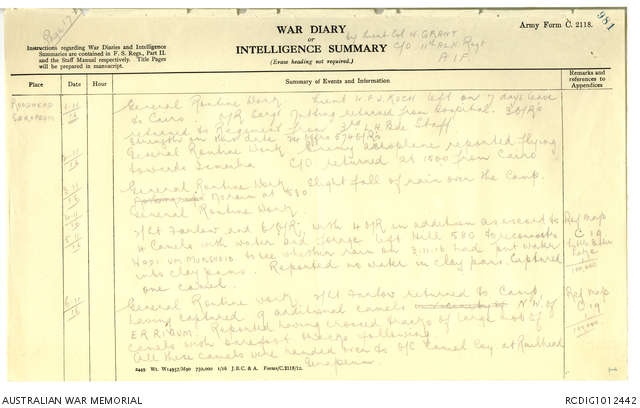 Page 17
WAR DIARY
or
INTELLIGENCE SUMMARY
(Erase heading not required.)
Army Form C. 2118.
981
by Lieut Col W. GRANT
C/O 11th A.L.H. Regt
A.I.F.
Instructions regarding War Diaries and Intelligence
Summaries are contained in F. S. Regs., Part II.
and the Staff Manual respectively. Title Pages
will be prepared in manuscript.
Place
Date
Hour
Summary of Events and Information
Remarks and
references to
Appendices
RAILHEAD
SERAPEUM
1.11
16
General Routine Work. Lieut W.F.J. KOCH left on 7 days leave
to Cairo. returned from hospital. 3 O/R's
returned to Regiment from 3rd L.H. Bde Staff
Strength
2.11
16
General Routine Work. Enemy aeroplane reported flying
towards Ismailia C/O returned at 1500 from Cairo
3.11
16
General Routine Work. Slight fall of rain over the Camp
4.11
16
General Routine Work
5.11
16
2/Lt Farlow and 6 O/R, with 4 O/R in addition as escort to
4 Camels with water and forage left Hill 580 to reconnoitre
WADI UM MUKSHEIB to see whether rain on 3.11.16 had put water
into clay pans. Reported no water in clay pans. Captured
one camel.
Ref Map
C 19
6.11
16
General Routine work. 2/Lt Farlow returned to Camp,
having captured 9 additional camels N.W. of
ER RIGUM. Reported having crossed tracks of large mob of
camels with barefoot tracks following
All these camels were handed over to O/C Camel Coy at Railhead
Serapeum.
Ref Map
C 19
2449 Wt. W14957/M90 750,000 1/16 J.B.C. & A. Forms/C.2118/12.
AUSTRALIAN WAR MEMORIAL
RCDIG1012442